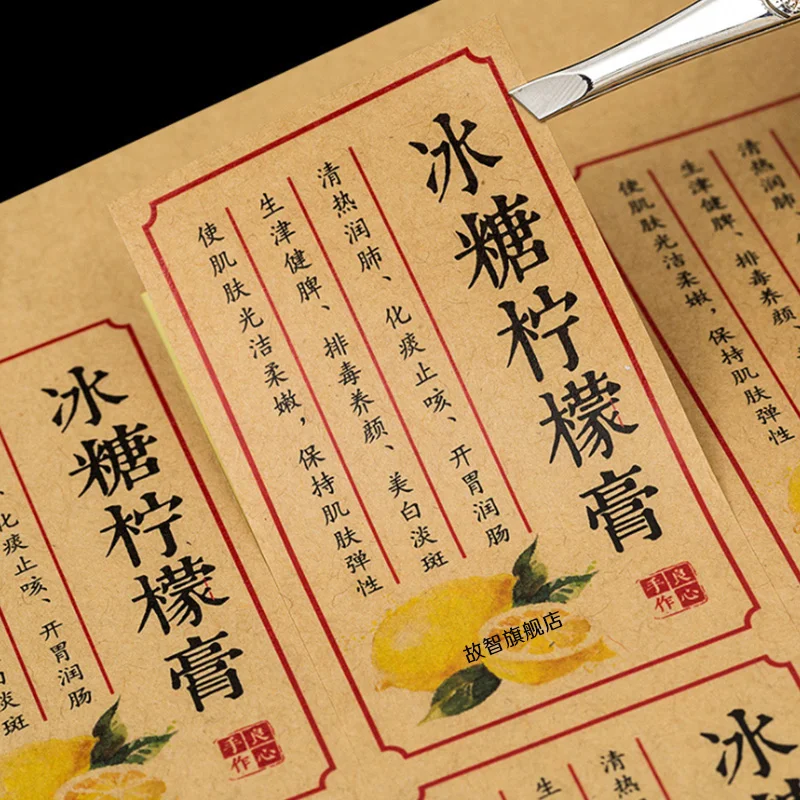 冰糖柠檬膏
清热润肺、化痰止咳、开胃润肠
生津健脾、排毒养颜、美白淡斑
使肌肤光洁柔嫩，保持肌肤弹性
良心
手作
故智旗舰店
冰糖柠檬膏
化痰止咳、开胃润肠
淡斑
良心
手作
清热润肺、
生津健脾、排毒养颜、
使肌肤光洁柔嫩，保持肌肤弹性
冰糖
清热
生